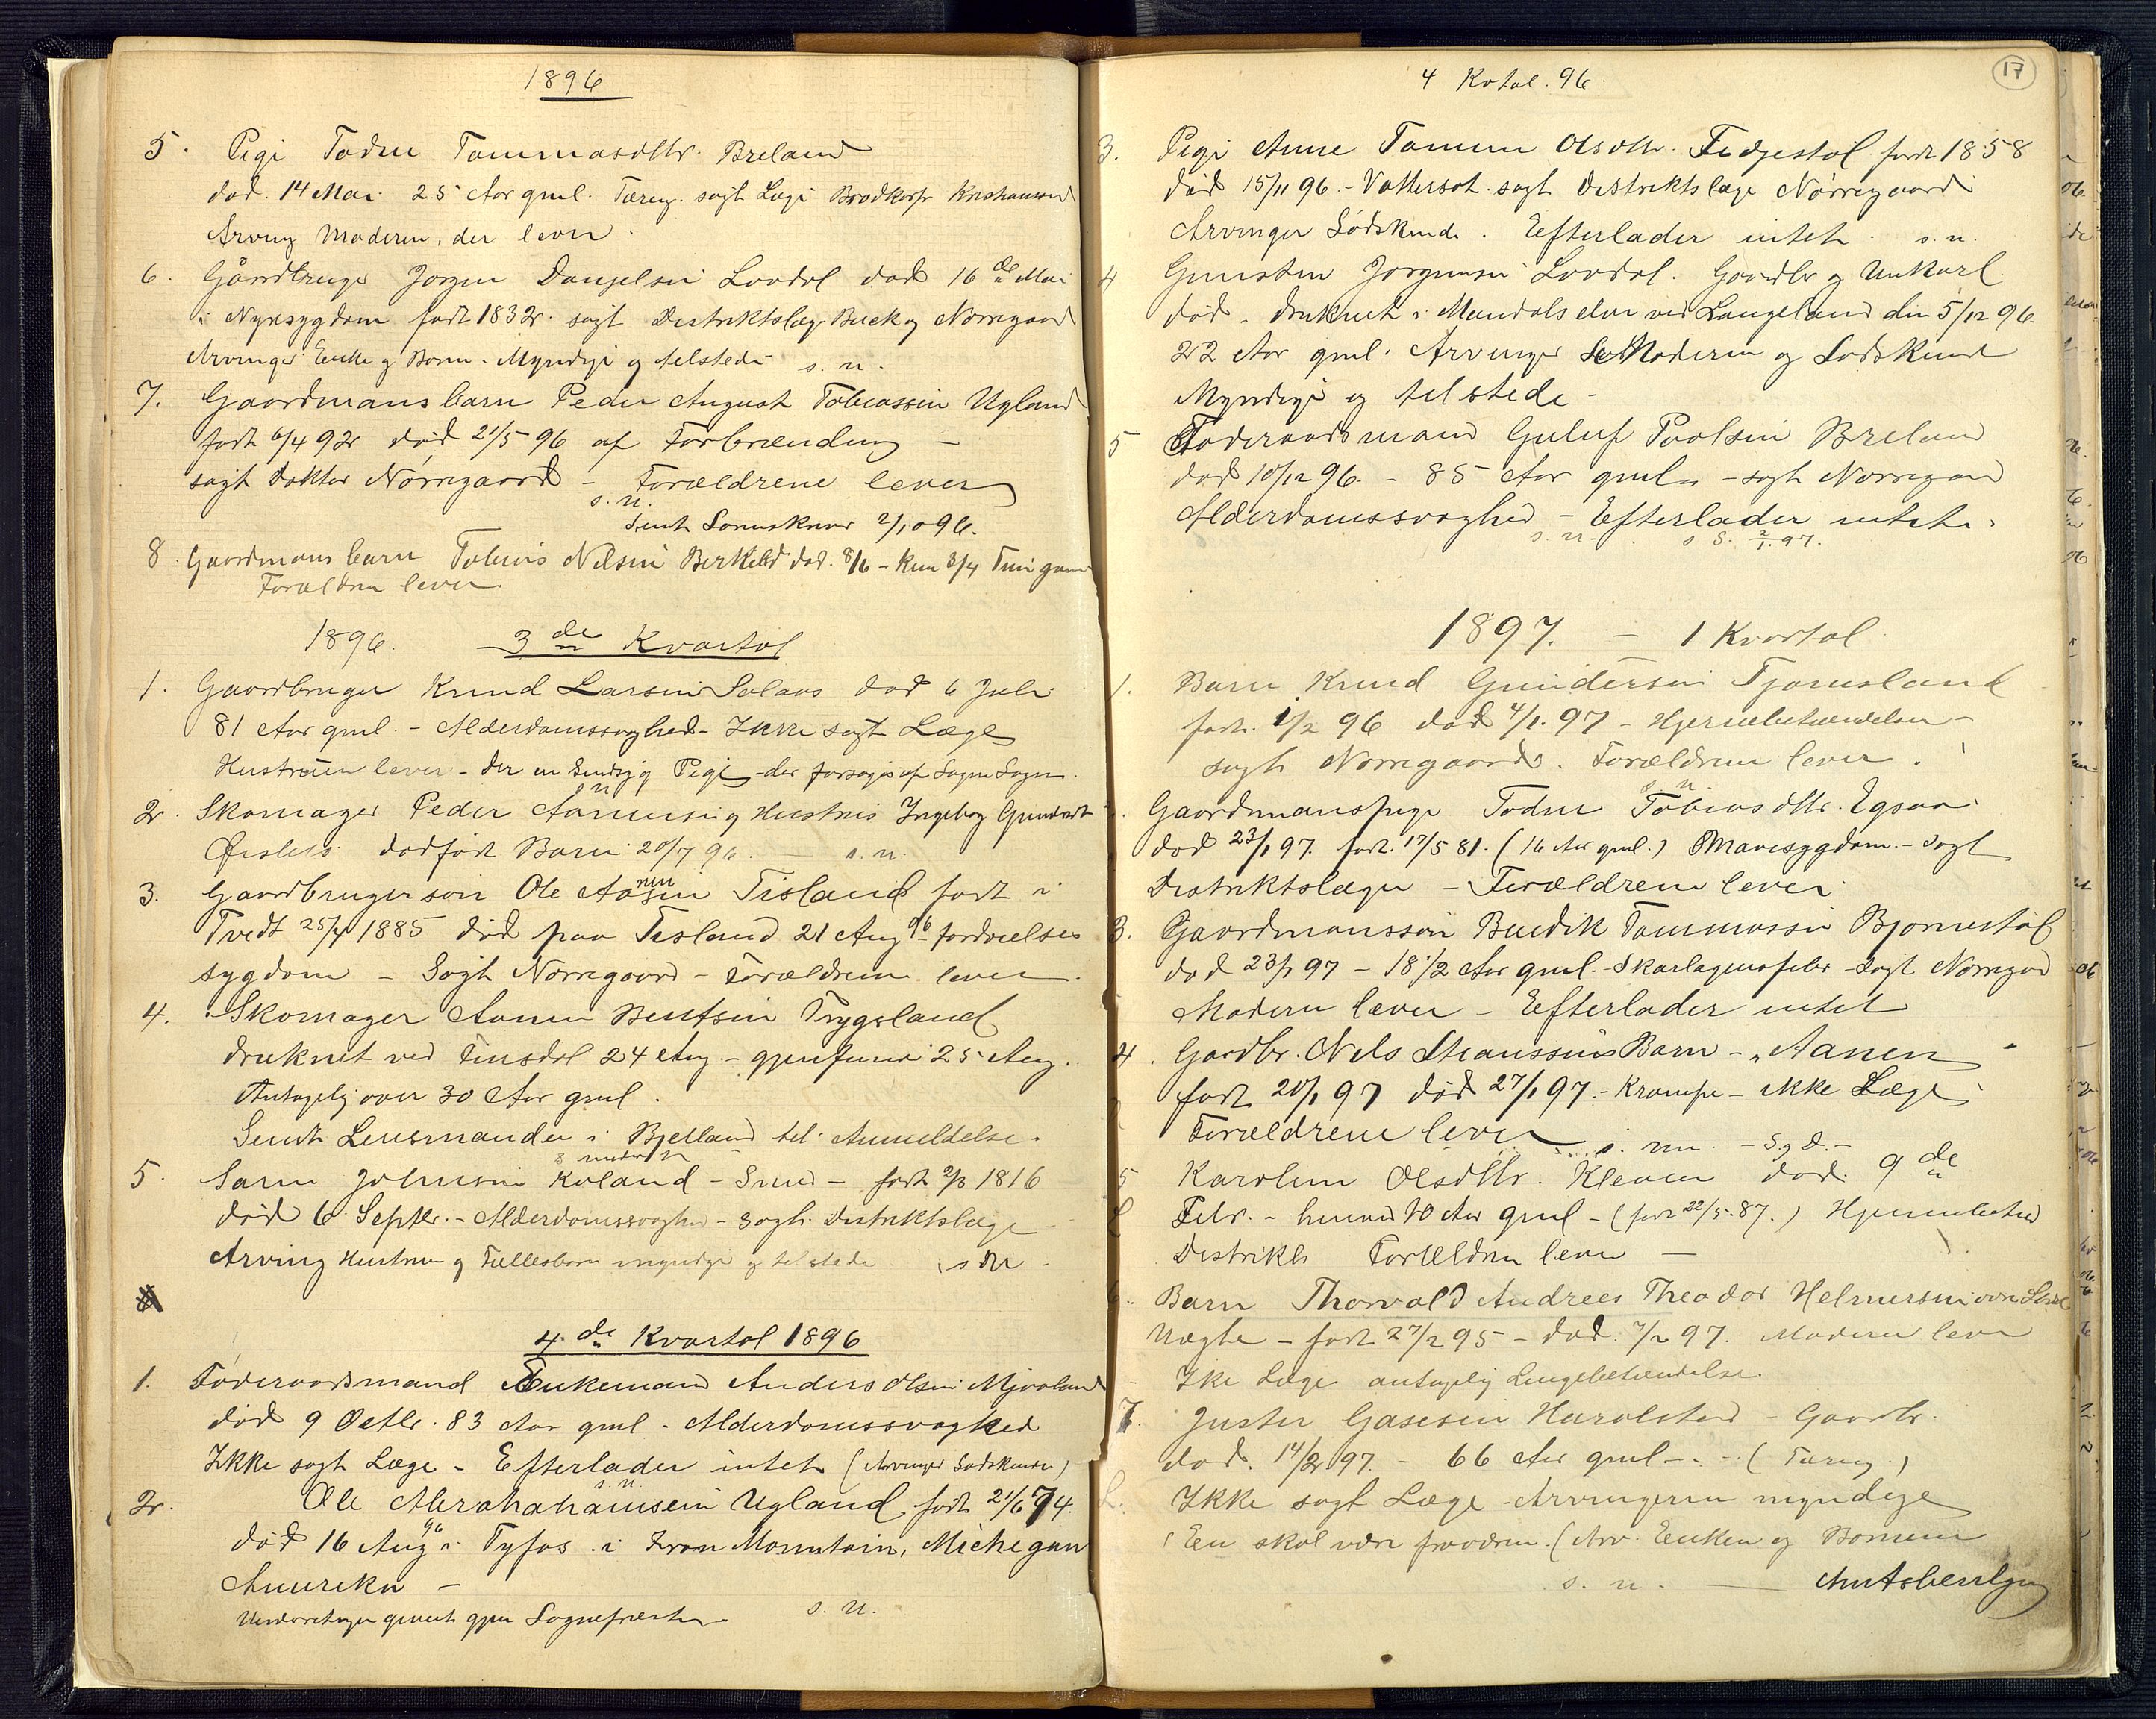 1896
5. Pige Todne Tommasdttr. Breland
död. 14 Mai 25 Aar gml. Tæring. sögt Læge Brodkorp Kristiansand
Arving Moderen, der lever.
6. Gårdbruger Jörgen Danjelsen Lövdal död 16de Mai
i Nyresygdom födt 1832. sögt Distriktslæge Buck og Nörregaard
Arvinger Enke og Börn. Myndige og tilstede s. n.
7. Gaardmansbarn Peder August Tobiassen Ugland
födt 6/4 92 död 21/5 96 af Forbrænding –
sögt Doktor Nörregaard – Forældrene lever
s. n.
Sendt Sorenskriver 2/10 96.
8. Gaardmansbarn Tobias Nilsen Birkeld död. 8/6 – kun 3/4 Time gammel
Forældrene lever
1896. 3de Kvartal
1. Gaardbruger Knud Larsen Solaas död 6 Juli
81 Aar gml. – Alderdomssvaghed – Ikke sögt Læge
Hustruen lever – der en Sindsyg Pige – der forsörges af Sogne
s. n.
2. Skomager Peder Aanensen og Hustrus Ingeborg Gundersdt
Öislebö dödfödt Barn 20/7 96. – s. n.
3. Gaardbrugersön Ole Aanensen Tisland födt i
Tvedt 25/4 1885 död paa Tisland 21 Aug 96 – fordöielses
sygdom – Sögt Nörregaard – Forældrene lever.
4. Skomager Aanen Bentsen Trygsland
druknet ved Finsdal 24 Aug. – gjenfunden 25 Aug.
Antagelig over 30 Aar gml.
Sendt Lensmanden i Bjelland til Anmeldelse.
5. Sören Johnsen Roland – Smed – födt 2/3 1816
död 6 Septbr. – Alderdomssvaghed – sögt Distriktslæge
Arving Hustrue og Fællesbörn myndige og tilstede s. n.
4.de Kvartal 1896
1. Föderaadsmand Enkemand Anders Olsen Mjaaland
död 9 Octbr. 83 Aar gml – Alderdomssvaghed
Ikke sögt Læge – Efterlader intet (Arvinger Södskende)
s. n.
2. Ole Abrahahamsen Ugland födt 21/6 74.
död 16 Aug 96 i Tyfos i Iron Mountain, Michegan
Amerika –
Underretningen givet gjen Sognepresten s. n.
4 Kvtal. 96.
17
3. Pige Anne Tomine Olsdttr. Fidjestöl födt 1858
död 15/11 96. – Vattersot. sögt Distriktslæge Nörregaard
Arvinger Södskende. Eefterlader intet. s. n.
4 Gunsten Jörgensen Lövdal. Gaardbr og Unkarl
död. druknet i Mandalselven ved Langeland den 5/12 96.
22 Aar gml. Arvinger Moderen og Södskende
Myndige og tilstede –
5 Föderaadsmand Guluf Paalsen Breland
död 10/12 96. – 85 Aar gml. – sögt Nörregaard
Alderdomssvaghed – Efterlader intet.
s. n. s. S. 2/1. 97.
1897. – 1 Kvartal
1. Barn Knud Gundersen Tjomsland
födt. 1/2 96 död 4/1. 97 – Hjernebetændelse –
sögt Nörregaard. Forældrene lever.
s. n.
Gaardmanspige Todne Tobiasdttr. Egsaa
död 23/1 97. födt. 17/5 81. (16 Aar gml.) Mavesygdom. – Sögt
Distriktslæge – Forældrene lever
3. Gaardmanssön Bendik Tommassen Bjornestöl
död 23/1 97 – 18 1/2 Aar gml. – Skarlagensfeber – Sögt Nörregaard
Moderen lever – Eefterlader intet
4. Gardbr. Nels Staanssens Barn – „Aanen“
födt 20/1 97 död 27/1 97. – Krampe – ikke Læge
Forældrene lever s. n. – S. g. d. –
5 Karoline Olsdttr. Kleven död. 9de
Febr. – henved 10 Aar gml – (födt 22/5. 87.) Hjernebetænd
Distrikts Forældrene lever –
6. Barn Thorvald Andreas Theodor Helmersen
Uægte – födt 27/2 95 – död. 7/2 97. Moderen lever
Ike Læge antagelig Lungebetændelse.
7. Juster Gasesen Haralstad – Gaardbr.
död. 14/2 97. – 66 Aar gml – . – (Tæring.)
Ikke sögt Læge – Arvingerne myndige
En skal være fraværen. (Arv. Enken og Börnene
s. n. –